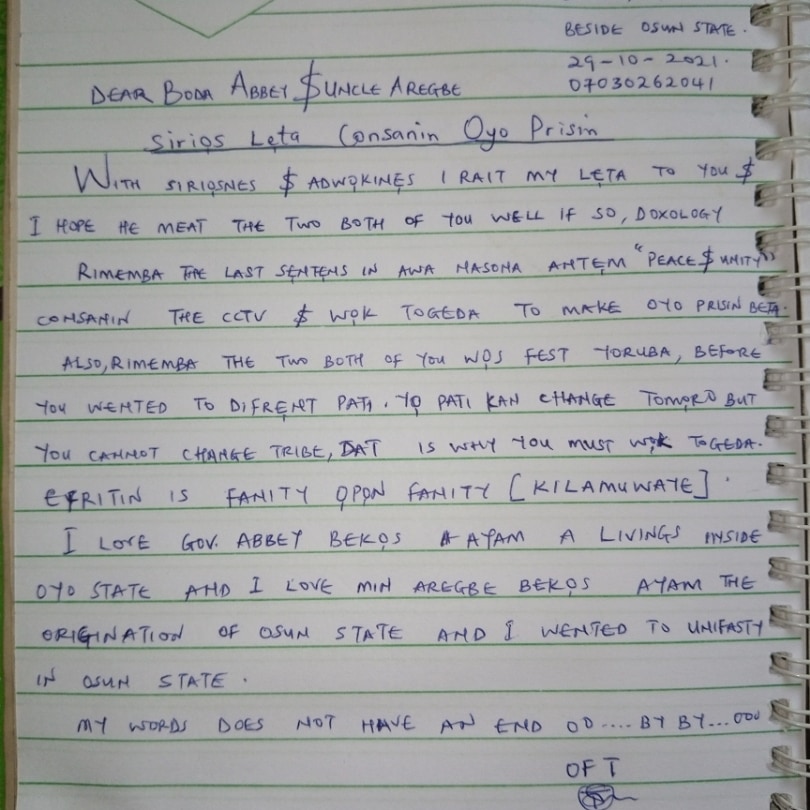 BESIDE OSUN STATE.
29-10-2021.
07030262041
DEAR BODA ABBEY $ UNCLE AREGBE
Sirios Leta Consanin Oyo Prisin
WITH SIRIOSNES $ ADWOKINES I RAIT MY LETA TO YOU $
I HOPE HE MEAT THE TWO BOTH OF YOU WELL IF SO, DOXOLOGY
RIMEMBA THE LAST SENTENS IN AWA NASONA ANTEM "PEACE $ UNITY"
CONSANIN THE CCTV $ WOK TOGEDA TO MAKE OYO PRISIN BETA.
ALSO, RIMEMBA THE TWO BOTH OF YOU WOS FEST YORUBA, BEFORE
YOU WENTED TO DIFRENT PATI. YO PATI KAN CHANGE TOMORO BUT
YOU CANNOT CHANGE TRIBE, DAT IS WHY YOU MUST WOK TOGEDA.
EFRITIN IS FANITY OPON FANITY [KILAMUWAYE].
I LOVE GOV. ABBEY BEKOS AYAM A LIVINGS INSIDE
OYO STATE AND I LOVE MIN AREGBE BEKOS AYAM THE
ORIGINATION OF OSUN STATE AND I WENTED TO UNIFASTY
IN OSUN STATE.
MY WORDS DOES NOT HAVE AN END OO.... BY BY... OOO
OFT